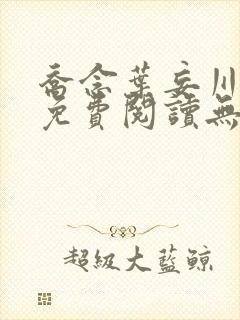 喬念葉妄川
免費閱讀無
超級大藍鯨